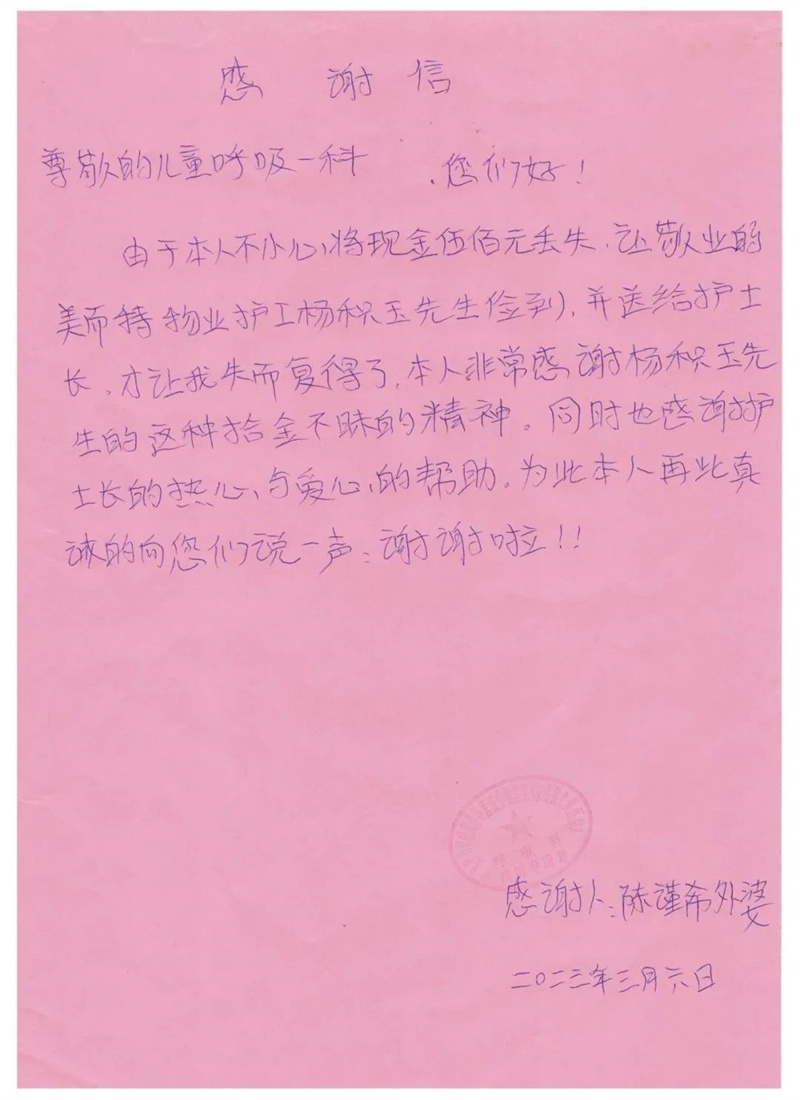 感谢信
尊敬的儿童呼吸一科 .您们好!
由于本人不小心,将现金伍佰元丢失.让敬业的
美而特物业护工杨积玉先生俭到,并送给护士
长.才让我失而复得了.本人非常感谢杨积玉先
生的这种拾金不昧的精神。同时也感谢护
士长的热心与爱心的帮助.为此本人再此真
诚的向您们说一声:谢谢啦!!
感谢人:陈谨希外婆
二〇二三年三月六日